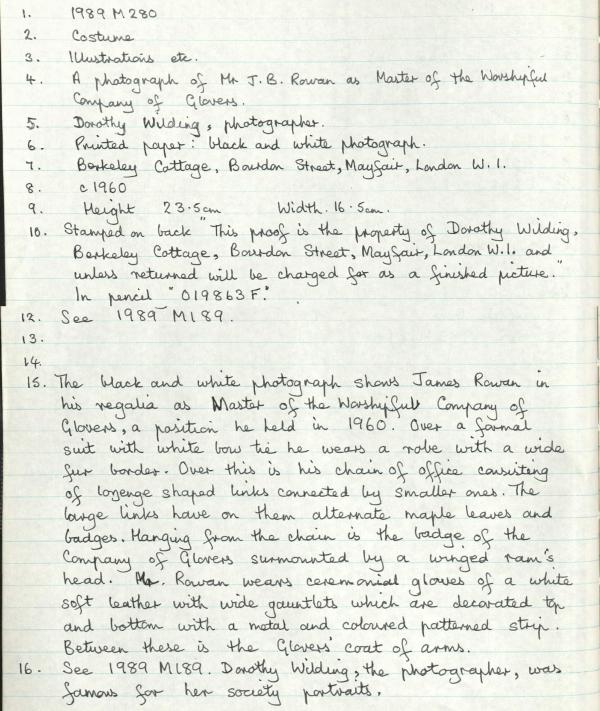 1. 1989 M 280
2. Costume
3. Illustrations etc.
4. A photograph of Mr J.B. Rowan as Master of the Worshipful
Company of Glovers.
5. Dorothy Wilding, photographer.
6. Printed paper: black and white photograph.
7. Berkeley Cottage, Bourdon Street, Mayfair, London W.1.
8. c1960
9. Height 23.5cm Width. 16.5cm.
10. Stamped on back "This proof is the property of Dorothy Wilding,
Berkeley Cottage, Bourdon Street, Mayfair, London W.1. and
unless returned will be charged for as a finished picture."
In pencil "019863F."
12. See 1989 M189.
13.
14.
15. The black and white photograph shows James Rowan in
his regalia as Master of the Worshipful Company of
Glovers, a position he held in 1960. Over a formal
suit with white bow tie he wears a robe with a wide
fur border. Over this is his chain of office consisting
of lozenge shaped links connected by smaller ones. The
large links have on them alternate maple leaves and
badges. Hanging from the chain is the badge of the
Company of Glovers surmounted by a winged ram's
head. Mr. Rowan wears ceremonial gloves of a white
soft leather with wide gauntlets which are decorated top
and bottom with a metal and coloured patterned strip.
Between these is the Glovers' coat of arms.
16. See 1989 M189. Dorothy Wilding, the photographer, was
famous for her society portraits.